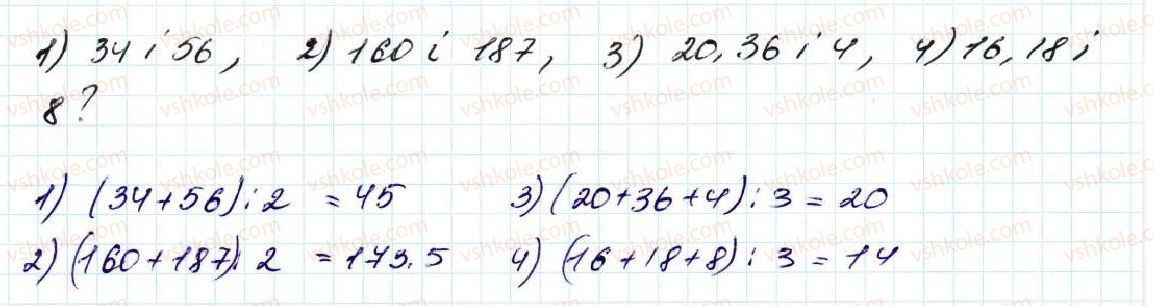 1) 34 і 56, 2) 160 і 187, 3) 20, 36 і 4, 4) 16, 18 і
8?
1) (34+56):2 = 45 3) (20+36+4):3 = 20
2) (160+187):2 = 173.5 4) (16+18+8):3 = 14
vshkole.com